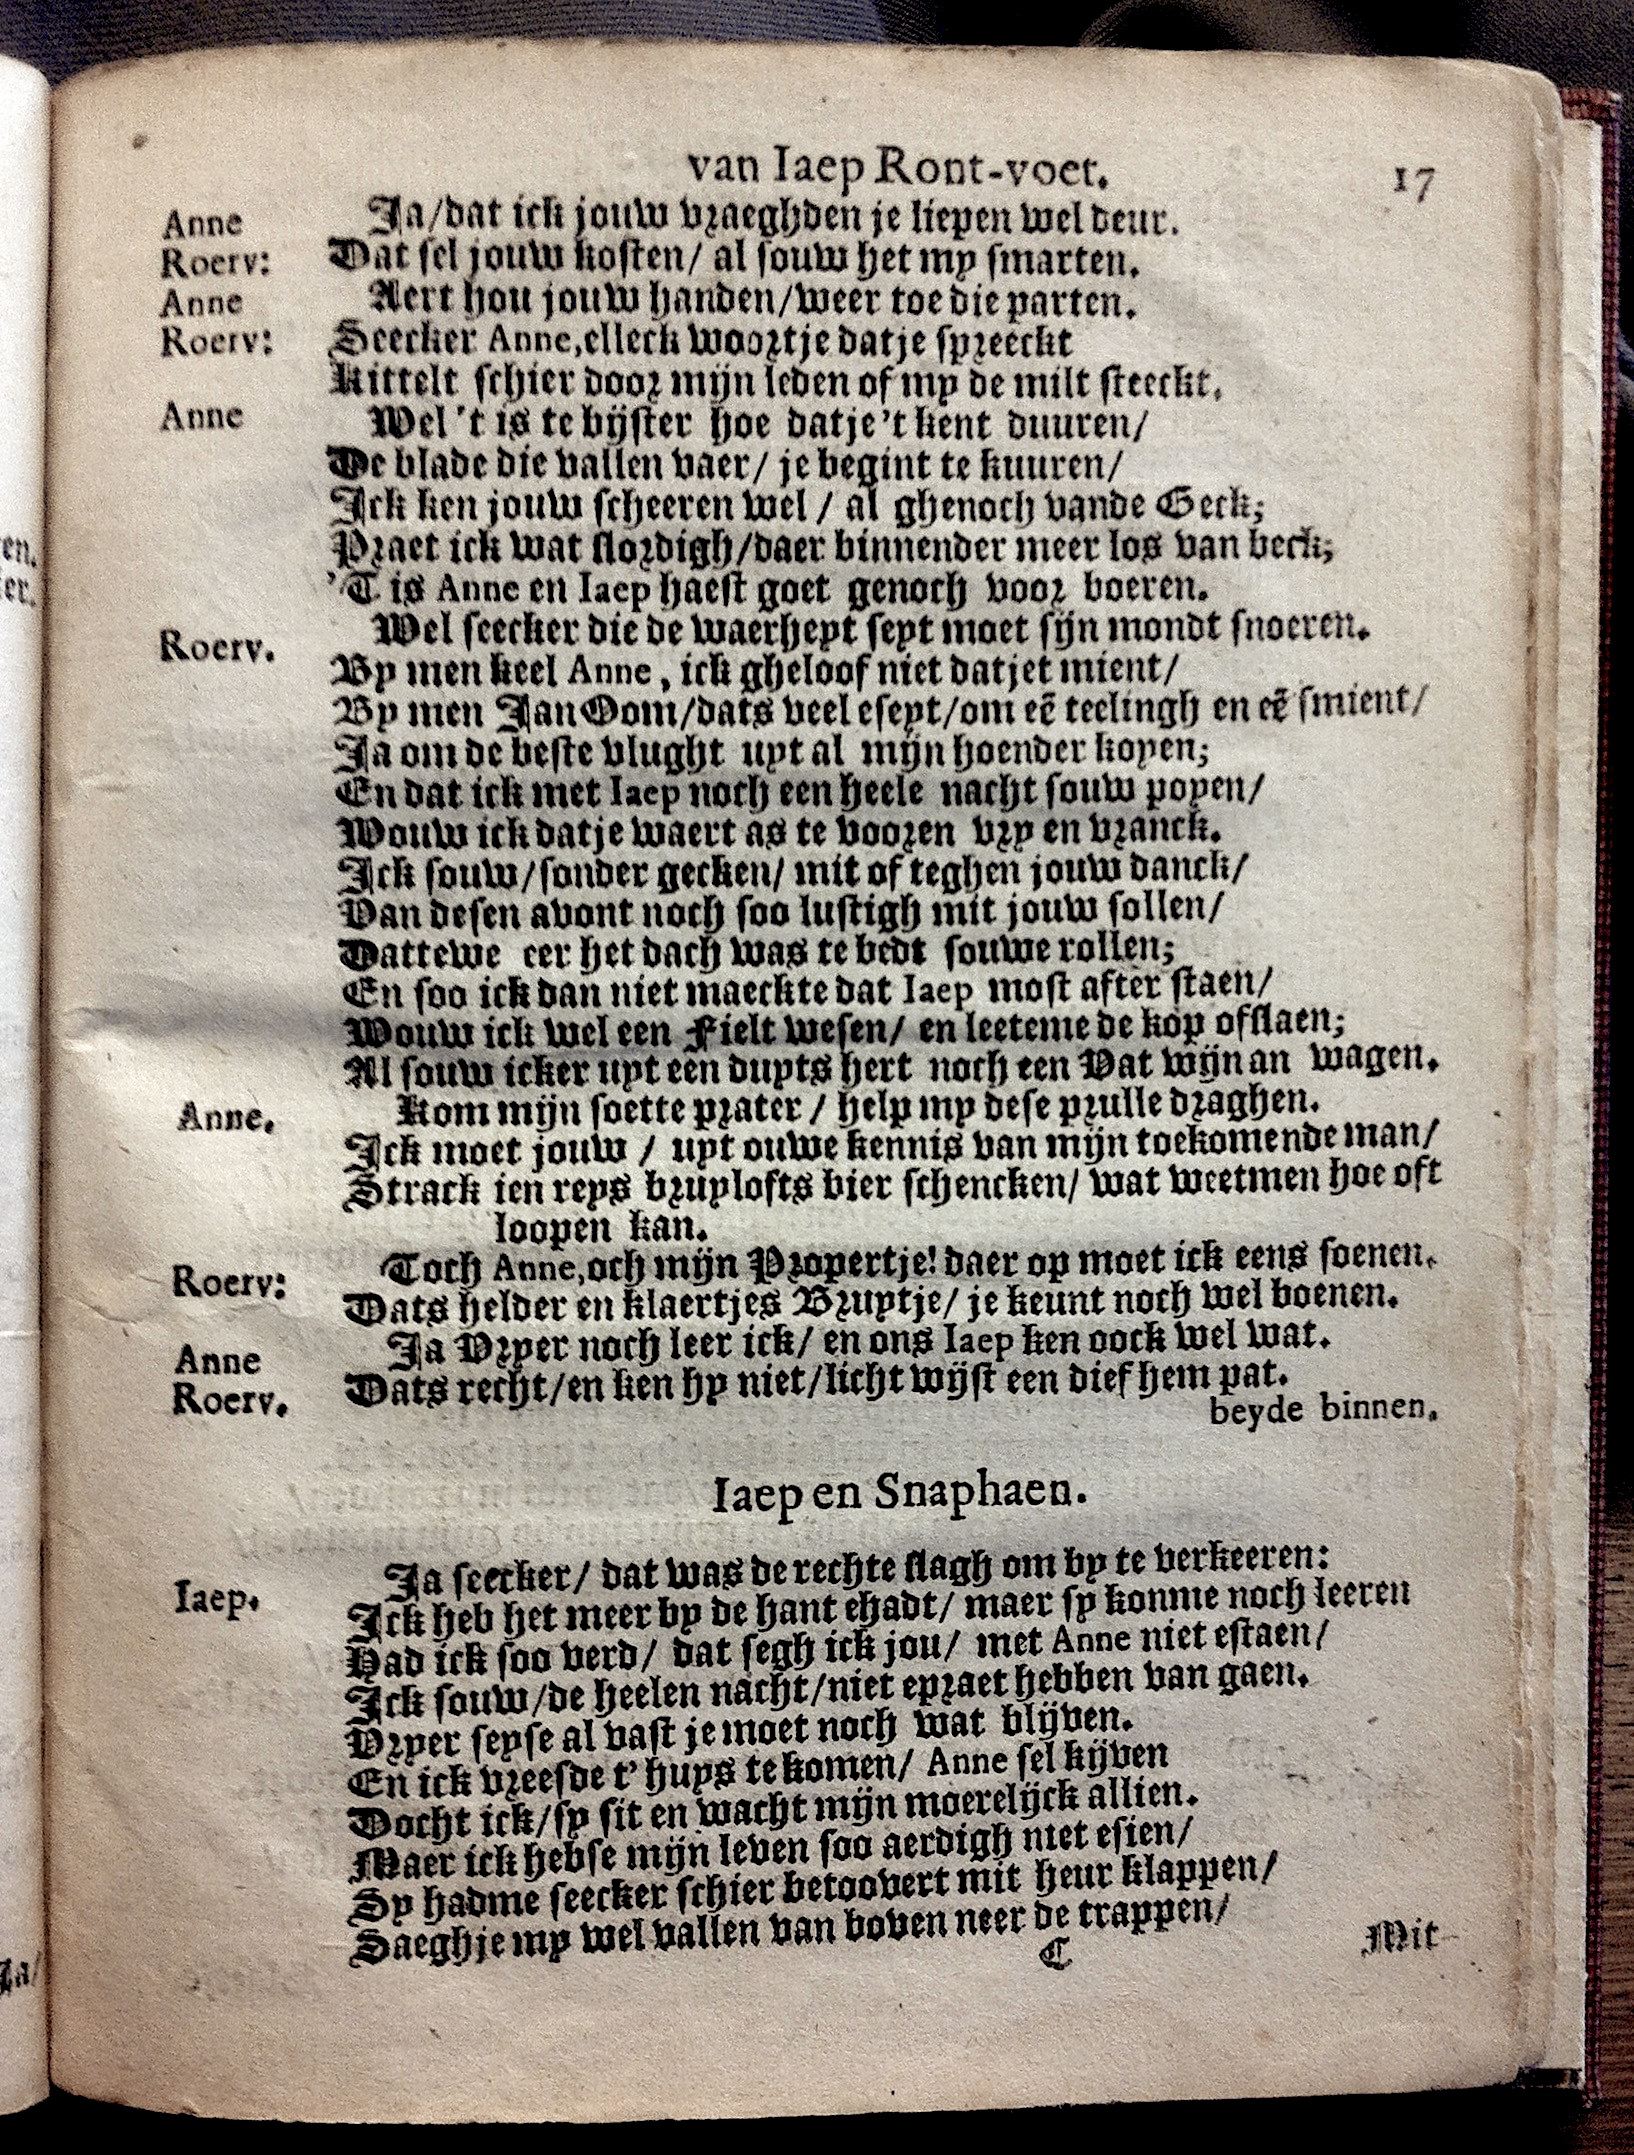 van Iaep Ront-voet. 17
Anne Ja/dat ick jouw vraeghden je liepen wel deur.
Roerv: Dat sel jouw kosten/ al souw het my smarten.
Anne Aert hou jouw handen/weer toe die parten.
Roerv: Seecker Anne,elleck woortje datje spreeckt
Kittelt schier door mijn leden of my de milt steeckt.
Anne Wel 't is te bijster hoe datje't kent duuren/
De blade die vallen vaer/ je begint te kuuren/
Ick ken jouw scheeren wel / al ghenoch vande Geck;
Praet ick wat slordigh/daer binnender meer los van beck;
'T is Anne en Iaep haest goet genoch voor boeren.
Roerv. Wel seecker die de waerheyt seyt moet sijn mondt snoeren.
By men keel Anne, ick gheloof niet datjet mient/
By men Jan Oom/dats veel eseyt/om eẽ teelingh en eẽ smient/
Ja om de beste vlught uyt al mijn hoender koyen;
En dat ick met Iaep noch een heele nacht souw poyen/
Wouw ick datje waert as te vooren vry en vranck.
Ick souw/sonder gecken/ mit of teghen jouw danck/
Van desen avont noch soo lustigh mit jouw sollen/
Dattewe eer het dach was te bedt souwe rollen;
En soo ick dan niet maeckte dat Iaep most after staen/
Wouw ick wel een Fielt wesen/ en leeteme de kop ofslaen;
Al souw icker uyt een duyts hert noch een Vat wijn an wagen.
Anne. Kom mijn soette prater / help my dese prulle draghen.
Ick moet jouw / uyt ouwe kennis van mijn toekomende man/
Strack ien reys bruylofts bier schencken/ wat weetmen hoe oft
loopen kan.
Roerv: Toch Anne,och mijn Propertje! daer op moet ick eens soenen.
Dats helder en klaertjes Bruytje/ je keunt noch wel boenen.
Anne Ja Vryer noch leer ick/ en ons Iaep ken oock wel wat.
Roerv. Dats recht/en ken hy niet/licht wijst een dief hem pat.
beyde binnen.
Iaep en Snaphaen.
Iaep. Ja seecker/ dat was de rechte slagh om by te verkeeren:
Ick heb het meer by de hant ehadt/ maer sy konme noch leeren
Had ick soo verd/ dat segh ick jou/ met Anne niet estaen/
Ick souw/de heelen nacht/niet epraet hebben van gaen.
Vryer seyse al vast je moet noch wat blijven.
En ick vreesde t' huys te komen/ Anne sel kijven
Docht ick/sy sit en wacht mijn moerelijck allien.
Maer ick hebse mijn leven soo aerdigh niet esien/
Sy hadme seecker schier betoovert mit heur klappen/
Saeghje my wel vallen van boven neer de trappen/
C Mit